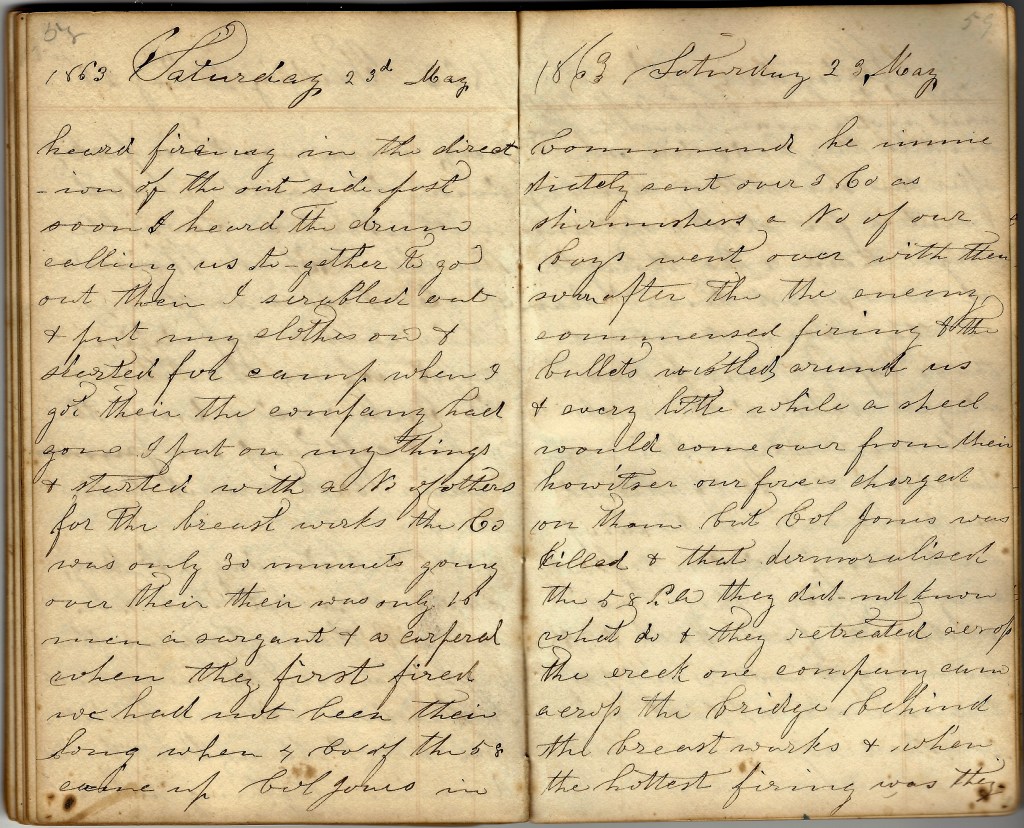 58
1863 Saturday 23d May
heard fireing in the direct
-ion of the out side post
soon I heard the drum
calling us to-gether to go
out their I scrabled out
& put my clothes on &
started for camp when I
got their the company had
gone I put on my things
& started with a No of others
for the breast works the Co
was only 30 minuets going
over their their was only 16
men a sargant & a corperal
when they first fired
we had not been their
long when 4 Co of the 58
came up Col Jones in
59
1863 Saturday 23 May
command he imme
diately sent over 3 Co as
skirmishers a No of our
boys went over with them
soon after the the enemy
commensed firing & the
bullets wistled around us
& every little while a sheel
would come over from their
howitser our forces charged
on them but Col Jones was
killed & that dermoralised
the 58 P.a they did-not know
what do & they retreated across
the creek one company cam
across the bridge behind
the breast works & when
the hottest firing was the